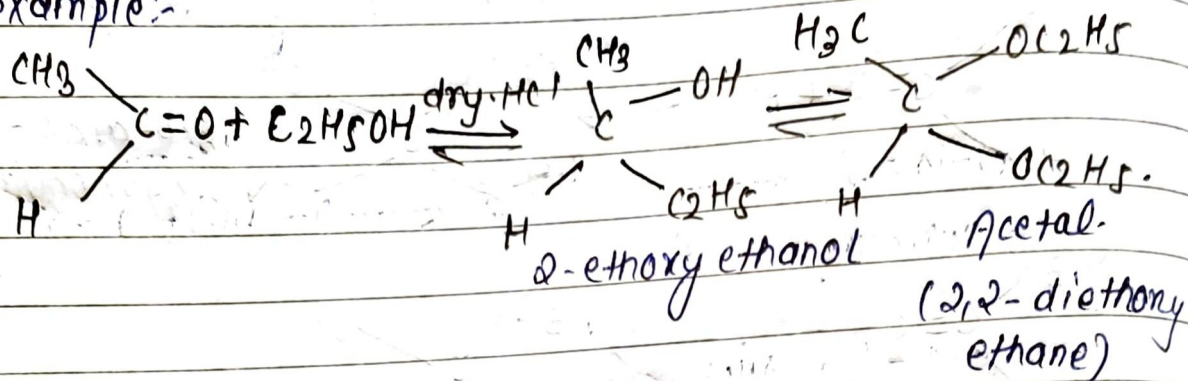 example:-
CH3 C=O + C2H5OH dry. HCl CH3 C OH H3C C OC2H5
H H C2H5 H OC2H5.
2-ethoxy ethanol Acetal.
(2,2-diethony
ethane)